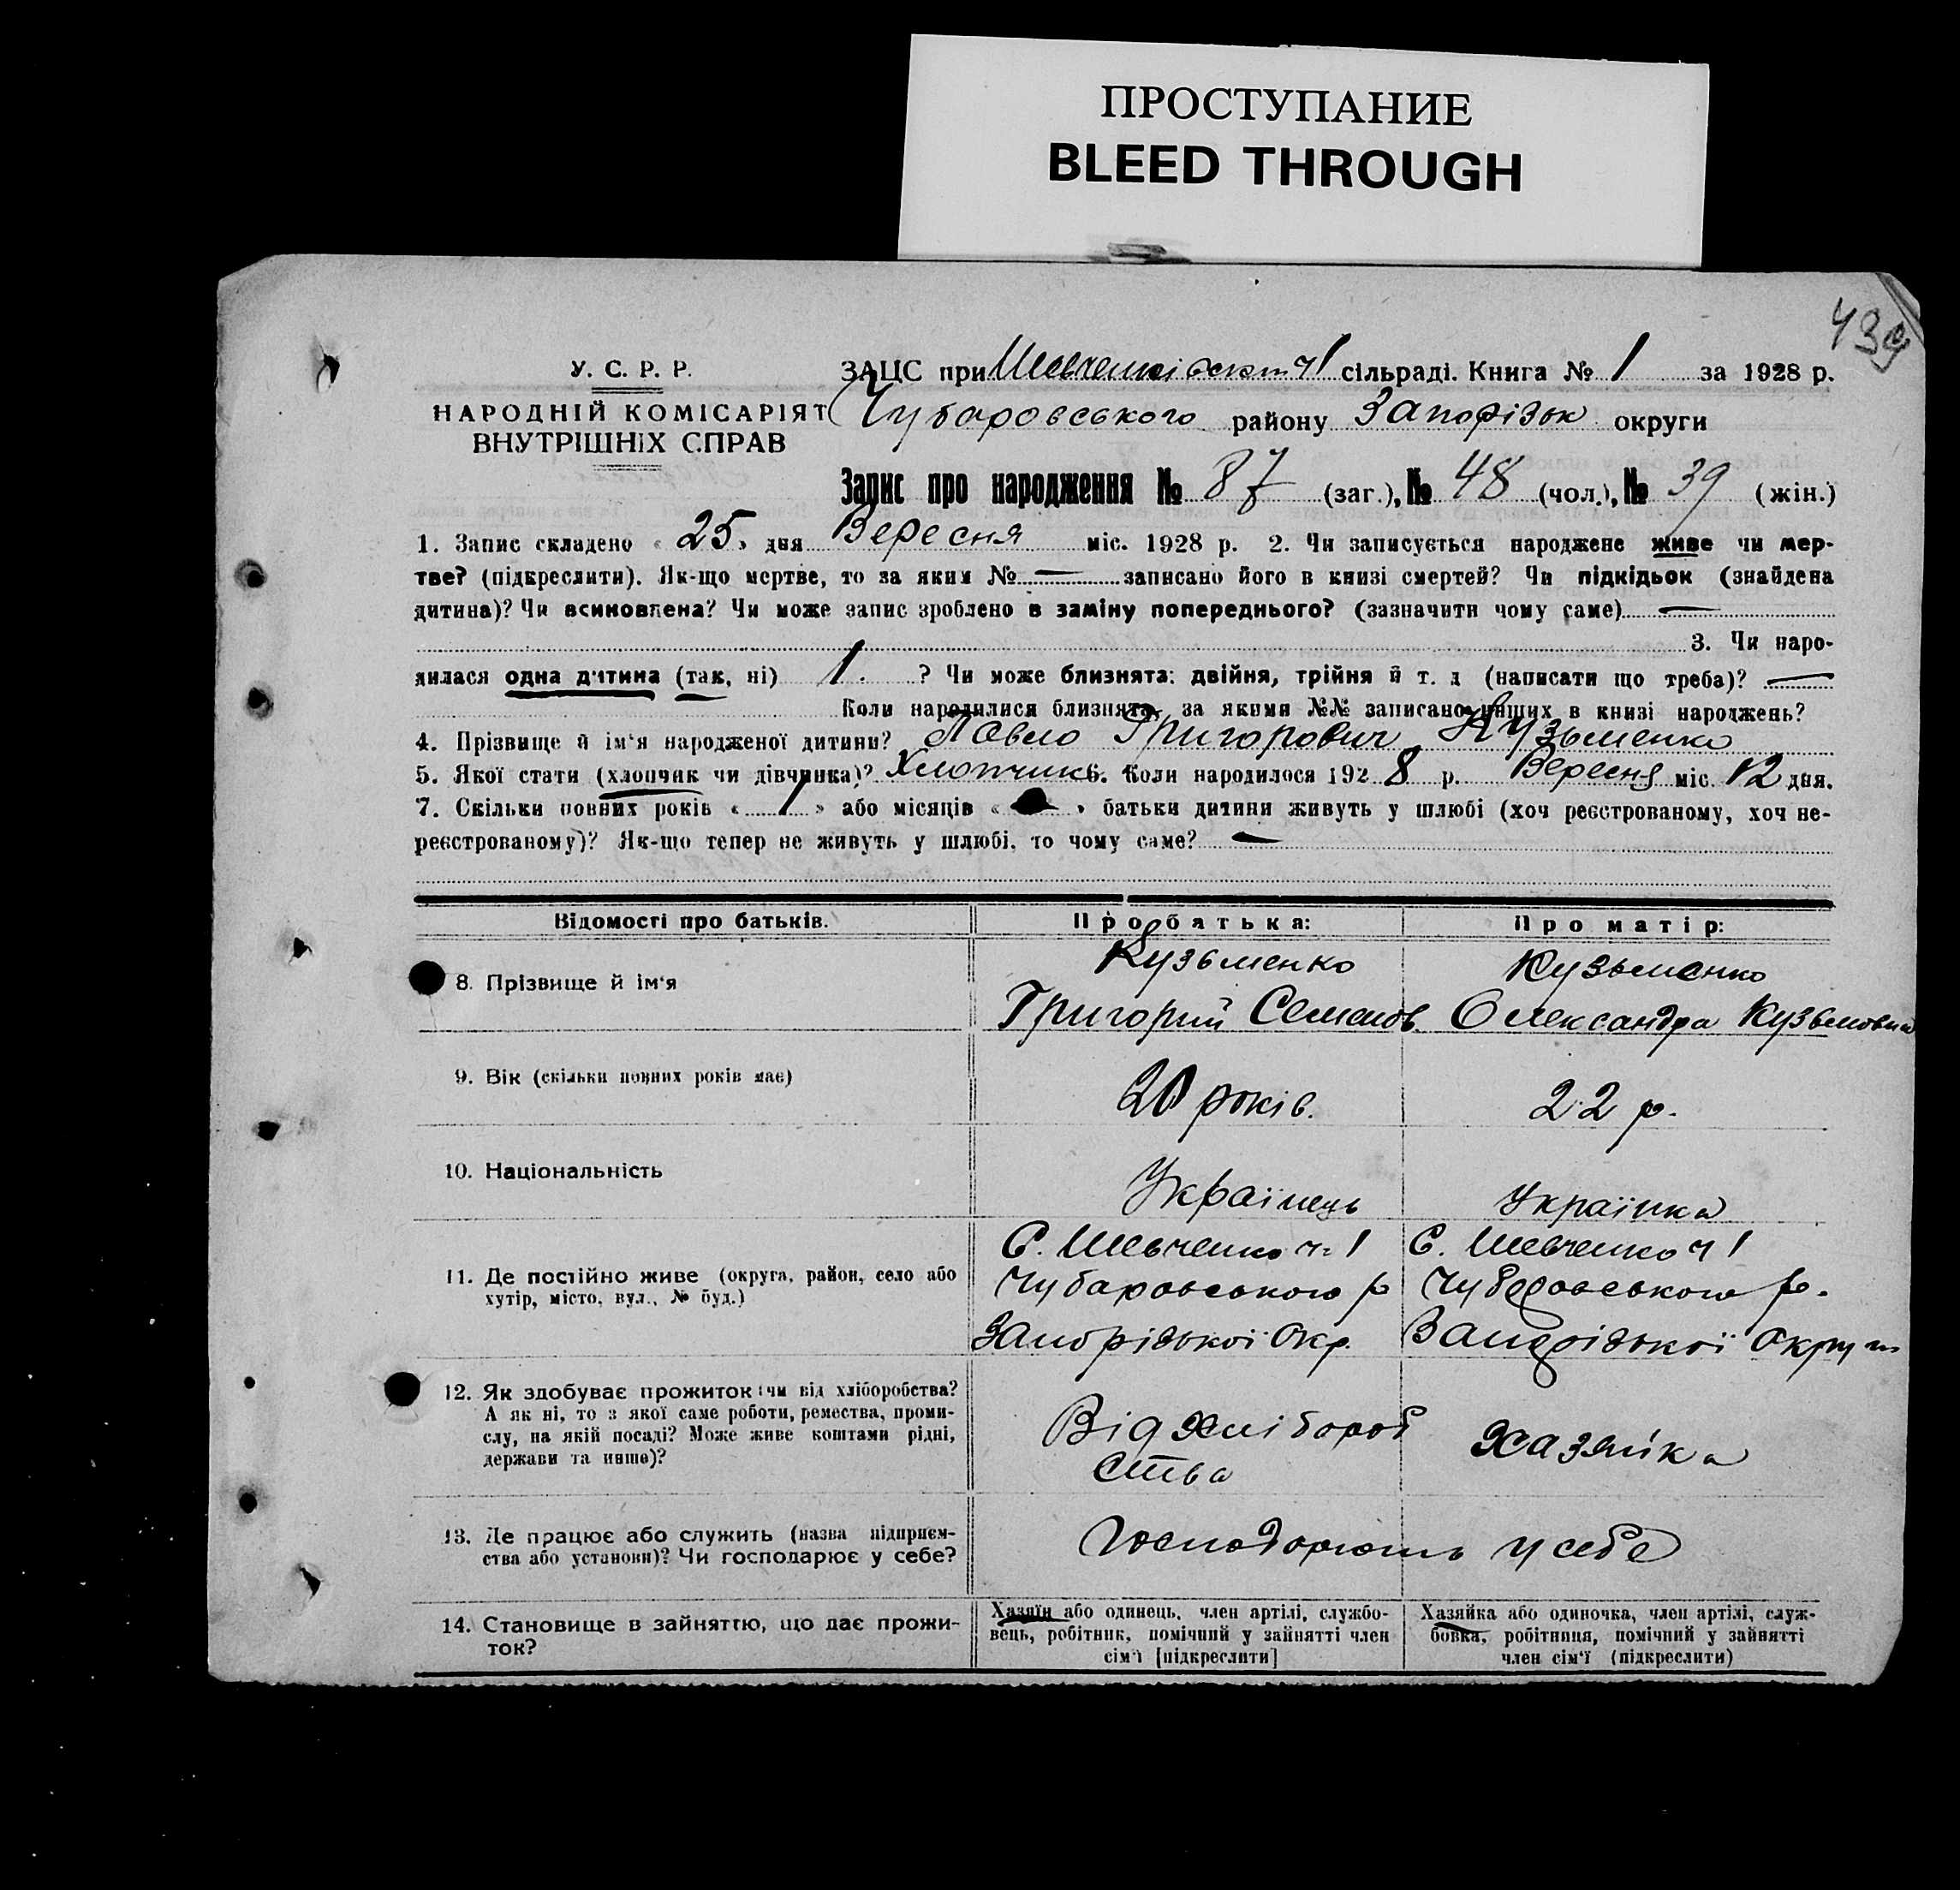 ПРОСТУПАНИЕ
BLEED THROUGH
439
У. С. Р. Р.
НАРОДНІЙ КОМІСАРІЯТ
ВНУТРІШНІХ СПРАВ
ЗАЦС при Шевченківськ ч 1 сільраді. Книга № 1 за 1928 р.
Чубаровського району Запорізьк округи
Запис про народження № 87 (заг.), № 48 (чол.), № 39 (жін.)
1. Запис складено « 25 » дня Вересня міс. 1928 р. 2. Чи записується народжене живе чи мер-
тве? (підкреслити). Як-що мертве, то за яким № — записано його в книзі смертей? Чи підкідьок (знайдена
дитина)? Чи всиновлена? Чи може запис зроблено в заміну попереднього? (зазначити чому саме) —
3. Чи наро-
дилася одна дитина (так, ні) 1. ? Чи може близнята: двійня, трійня й т. д (написати що треба)? —
Коли народилися близнята, за якими №№ записано инших в книзі народжень?
4. Прізвище й ім'я народженої дитини? Павло Григорович Кузьменко
5. Якої стати (хлопчик чи дівчинка)? Хлопчик 6. Коли народилося 1928 р. Вересня міс. 12 дня.
7. Скільки повних років « 1 » або місяців « » батьки дитини живуть у шлюбі (хоч реєстрованому, хоч не-
реєстрованому)? Як-що тепер не живуть у шлюбі, то чому саме? —
Відомості про батьків. Про батька: Про матір:
8. Прізвище й ім'я
Кузьменко
Григорий Семенов
Кузьменко
Олександра Кузьмовна
9. Вік (скільки повних років має)
20 років.
22 р.
10. Національність
Українець
Українка
11. Де постійно живе (округа, район, село або
хутір, місто, вул., № буд.)
С. Шевченко ч. 1
Чубаровського р
Запорізької Окр.
С. Шевченко ч 1
Чубаровського р.
Запорізької Округи
12. Як здобуває прожиток: чи від хліборобства?
А як ні, то з якої саме роботи, ремества, проми-
слу, на якій посаді? Може живе коштами рідні,
держави та инше)?
Від хлібороб
ства
Хазяйка
13. Де працює або служить (назва підприєм-
ства або установи)? Чи господарює у себе?
Господарюють у себе
14. Становище в зайняттю, що дає прожи-
ток?
Хазяїн або одинець, член артілі, службо-
вець, робітник, помічний у зайнятті член
сім'ї [підкреслити]
Хазяйка або одиночка, член артілі, служ-
бовка, робітниця, помічний у зайнятті
член сім'ї (підкреслити)